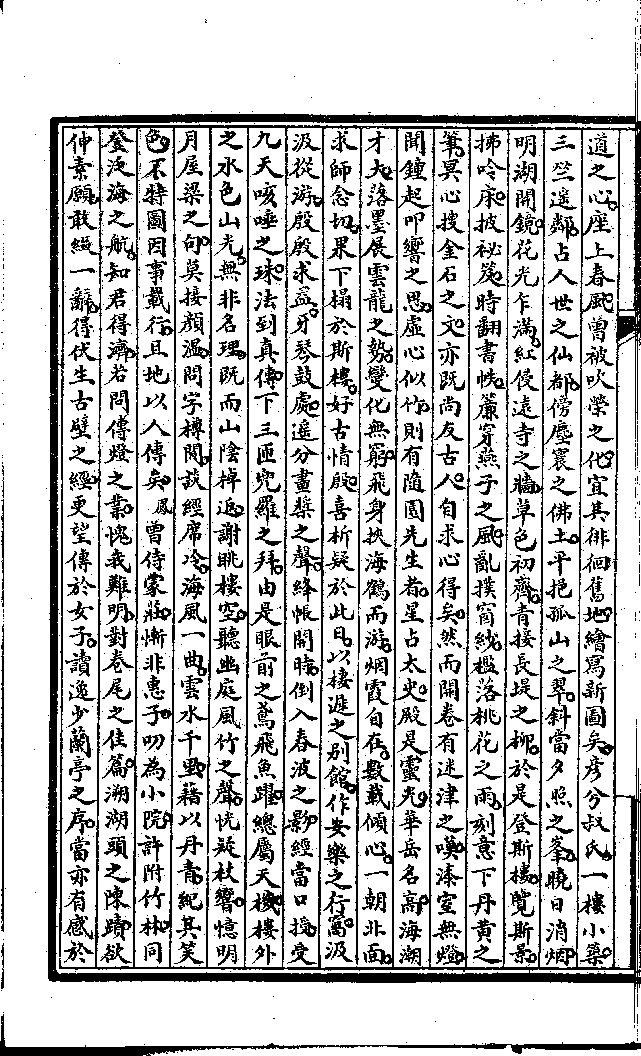 道之心座上春風曾被吹榮之化宜其徘徊舊地繪寫新圖矣彥兮叔氏一樓小築
三竺遥鄰占人世之仙都傍塵寰之佛土平挹孤山之翠斜當夕照之峯曉日消烟
明湖開鏡花光乍滿紅侵遠寺之牆草色初齊青接長堤之柳於是登斯樓覽斯景
拂吟床披祕笈時翻書帙簾穿燕子之風亂撲窗紗檻落桃花之雨刻意下丹黃之
筆冥心搜金石之文亦既尚友古人自求心得矣然而開卷有迷津之嘆漆室無燈
聞鐘起叩響之思虛心似竹則有隨園先生者星占太史殿是靈光華岳名高海湖
才大落墨展雲龍之勢變化無窮飛身挾海鶴而游烟霞自在數載傾心一朝北面
求師念切果下榻於斯樓好古情殷喜析疑於此日以棲遲之別館作安樂之行窩汲
汲從游殷殷求益牙琴鼓處遥分畫槳之聲絳帳開時倒入春波之影經當口授受
九天咳唾之珠法到真傳下三匝兜羅之拜由是眼前之鳶飛魚躍總屬天機樓外
之水色山光無非名理既而山陰棹返謝眺樓空聽幽庭風竹之聲恍疑杖響憶明
月屋梁之句莫接顔溫問字樽閒談經席冷海風一曲雲水千里藉以丹青紀其笑
色不特圖因事載行且地以人傳矣鳳曾侍蒙莊慚非惠子叨為小阮許附竹林同
登泛海之航知君得濟若問傳燈之業愧我難明對卷尾之佳篇溯湖頭之陳蹟欲
伸素願敢綴一辭得伏生古壁之經更望傳於女子讀逸少蘭亭之序當亦有感於